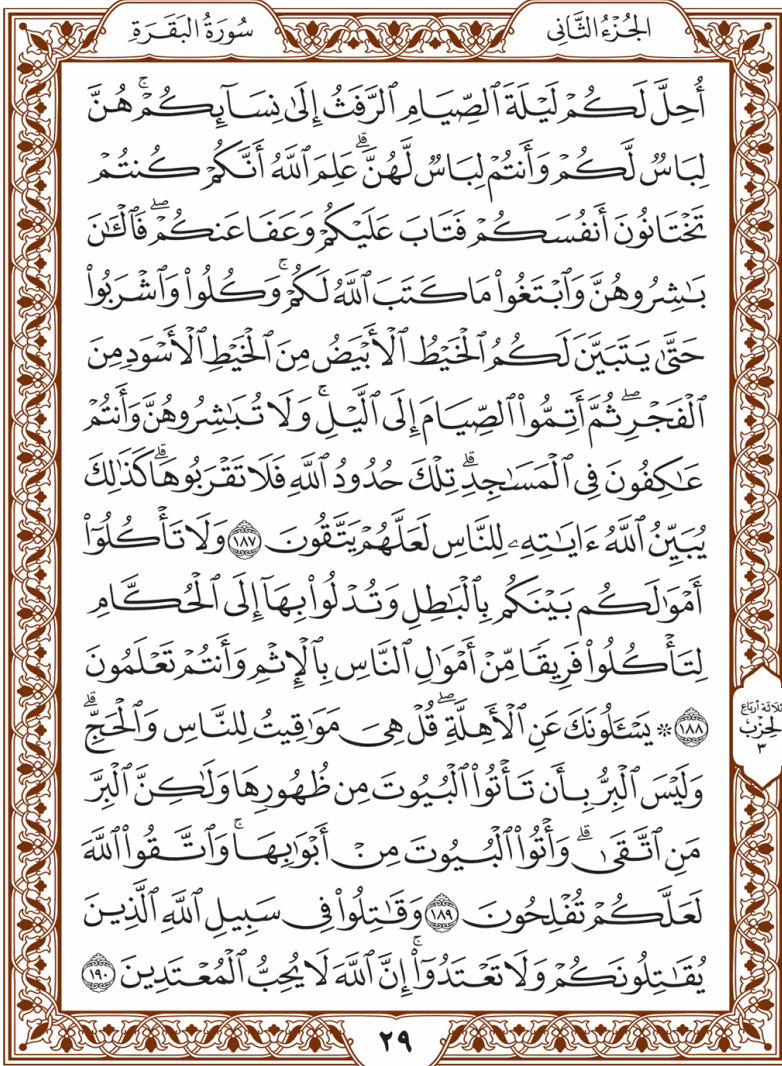 سُورَةُ الْبَقَرَةِ
الجُزْءُ الثَّانِى
أُحِلَّ لَكُمۡ لَيۡلَةَ ٱلصِّيَامِ ٱلرَّفَثُ إِلَىٰ نِسَآئِكُمۡۚ هُنَّ
لِبَاسٞ لَّكُمۡ وَأَنتُمۡ لِبَاسٞ لَّهُنَّۗ عَلِمَ ٱللَّهُ أَنَّكُمۡ كُنتُمۡ
تَخۡتَانُونَ أَنفُسَكُمۡ فَتَابَ عَلَيۡكُمۡ وَعَفَا عَنكُمۡۖ فَٱلۡـَٰٔنَ
بَٰشِرُوهُنَّ وَٱبۡتَغُواْ مَا كَتَبَ ٱللَّهُ لَكُمۡۚ وَكُلُواْ وَٱشۡرَبُواْ
حَتَّىٰ يَتَبَيَّنَ لَكُمُ ٱلۡخَيۡطُ ٱلۡأَبۡيَضُ مِنَ ٱلۡخَيۡطِ ٱلۡأَسۡوَدِ مِنَ
ٱلۡفَجۡرِۖ ثُمَّ أَتِمُّواْ ٱلصِّيَامَ إِلَى ٱلَّيۡلِۚ وَلَا تُبَٰشِرُوهُنَّ وَأَنتُمۡ
عَٰكِفُونَ فِي ٱلۡمَسَٰجِدِۗ تِلۡكَ حُدُودُ ٱللَّهِ فَلَا تَقۡرَبُوهَاۗ كَذَٰلِكَ
يُبَيِّنُ ٱللَّهُ ءَايَٰتِهِۦ لِلنَّاسِ لَعَلَّهُمۡ يَتَّقُونَ ١٨٧ وَلَا تَأۡكُلُوٓاْ
أَمۡوَٰلَكُم بَيۡنَكُم بِٱلۡبَٰطِلِ وَتُدۡلُواْ بِهَآ إِلَى ٱلۡحُكَّامِ
لِتَأۡكُلُواْ فَرِيقٗا مِّنۡ أَمۡوَٰلِ ٱلنَّاسِ بِٱلۡإِثۡمِ وَأَنتُمۡ تَعۡلَمُونَ
١٨٨ * يَسۡـَٔلُونَكَ عَنِ ٱلۡأَهِلَّةِۖ قُلۡ هِيَ مَوَٰقِيتُ لِلنَّاسِ وَٱلۡحَجِّۗ
وَلَيۡسَ ٱلۡبِرُّ بِأَن تَأۡتُواْ ٱلۡبُيُوتَ مِن ظُهُورِهَا وَلَٰكِنَّ ٱلۡبِرَّ
مَنِ ٱتَّقَىٰۗ وَأۡتُواْ ٱلۡبُيُوتَ مِنۡ أَبۡوَٰبِهَاۚ وَٱتَّقُواْ ٱللَّهَ
لَعَلَّكُمۡ تُفۡلِحُونَ ١٨٩ وَقَٰتِلُواْ فِي سَبِيلِ ٱللَّهِ ٱلَّذِينَ
يُقَٰتِلُونَكُمۡ وَلَا تَعۡتَدُوٓاْۚ إِنَّ ٱللَّهَ لَا يُحِبُّ ٱلۡمُعۡتَدِينَ ١٩٠
ثلاثة أرباع
الحزب
٣
٢٩